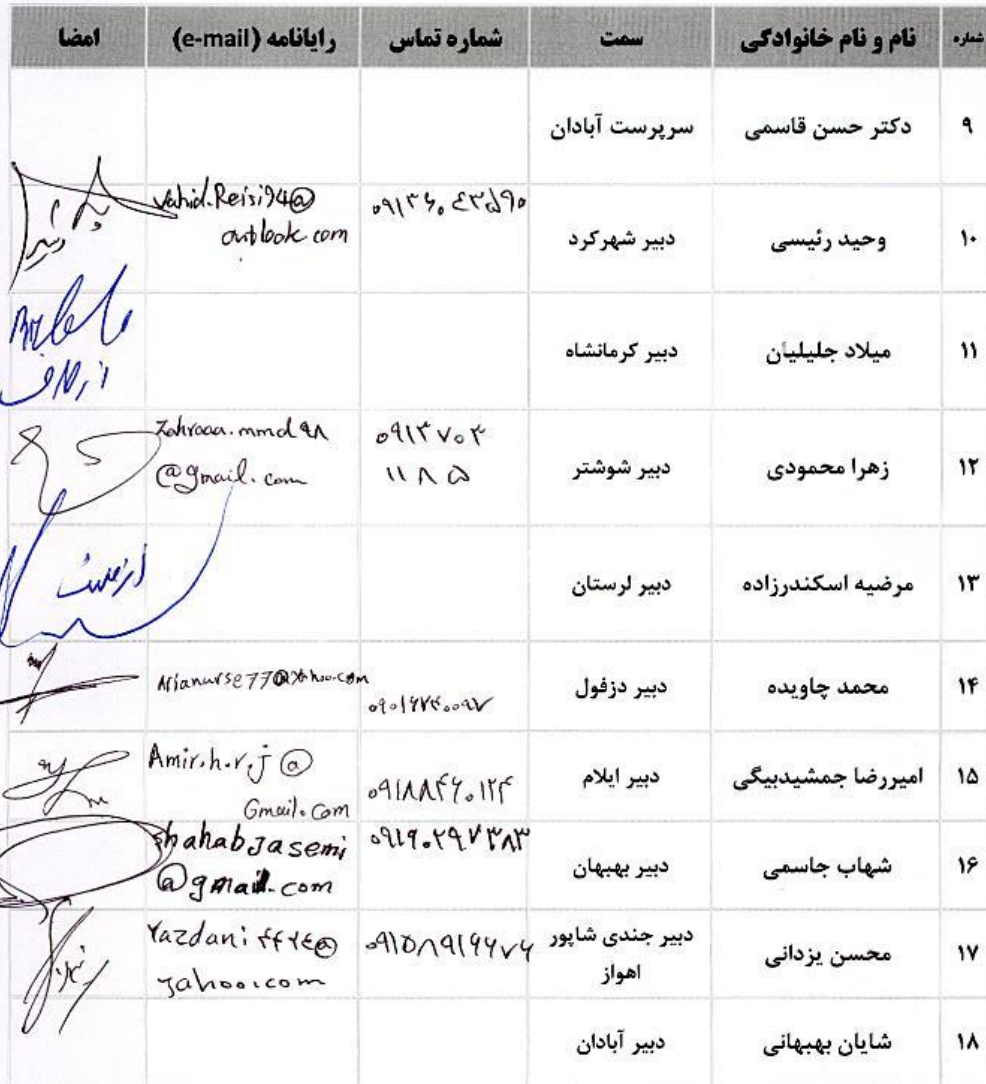 شماره نام و نام خانوادگی سمت شماره تماس رایانامه (e-mail) امضا
۹ دکتر حسن قاسمی سرپرست آبادان
۱۰ وحید رئیسی دبیر شهرکرد ۰۹۱۳۶۰۴۳۵۹۰ Vahid.Reisi94@
outlook.com
۱۱ میلاد جلیلیان دبیر کرمانشاه از طرف
۱۲ زهرا محمودی دبیر شوشتر ۰۹۱۳۷۰۳ Zahraaa.mmd۹۸
۱۱۸۵ @gmail.com
۱۳ مرضیه اسکندرزاده دبیر لرستان
۱۴ محمد چاویده دبیر دزفول Arianurse77@Yahoo.com
۱۵ امیررضا جمشیدبیگی دبیر ایلام ۰۹۱۸۸۴۶۰۱۲۴ Amir.h.r.j@
Gmail.com
۱۶ شهاب جاسمی دبیر بهبهان ۰۹۱۶۰۲۹۷۳۸۳ shahabjasemi
@gmail.com
۱۷ محسن یزدانی دبیر جندی شاپور ۰۹۱۵۸۹۱۶۶۷۶ Yazdani۴۴۲۴@
اهواز yahoo.com
۱۸ شایان بهبهانی دبیر آبادان